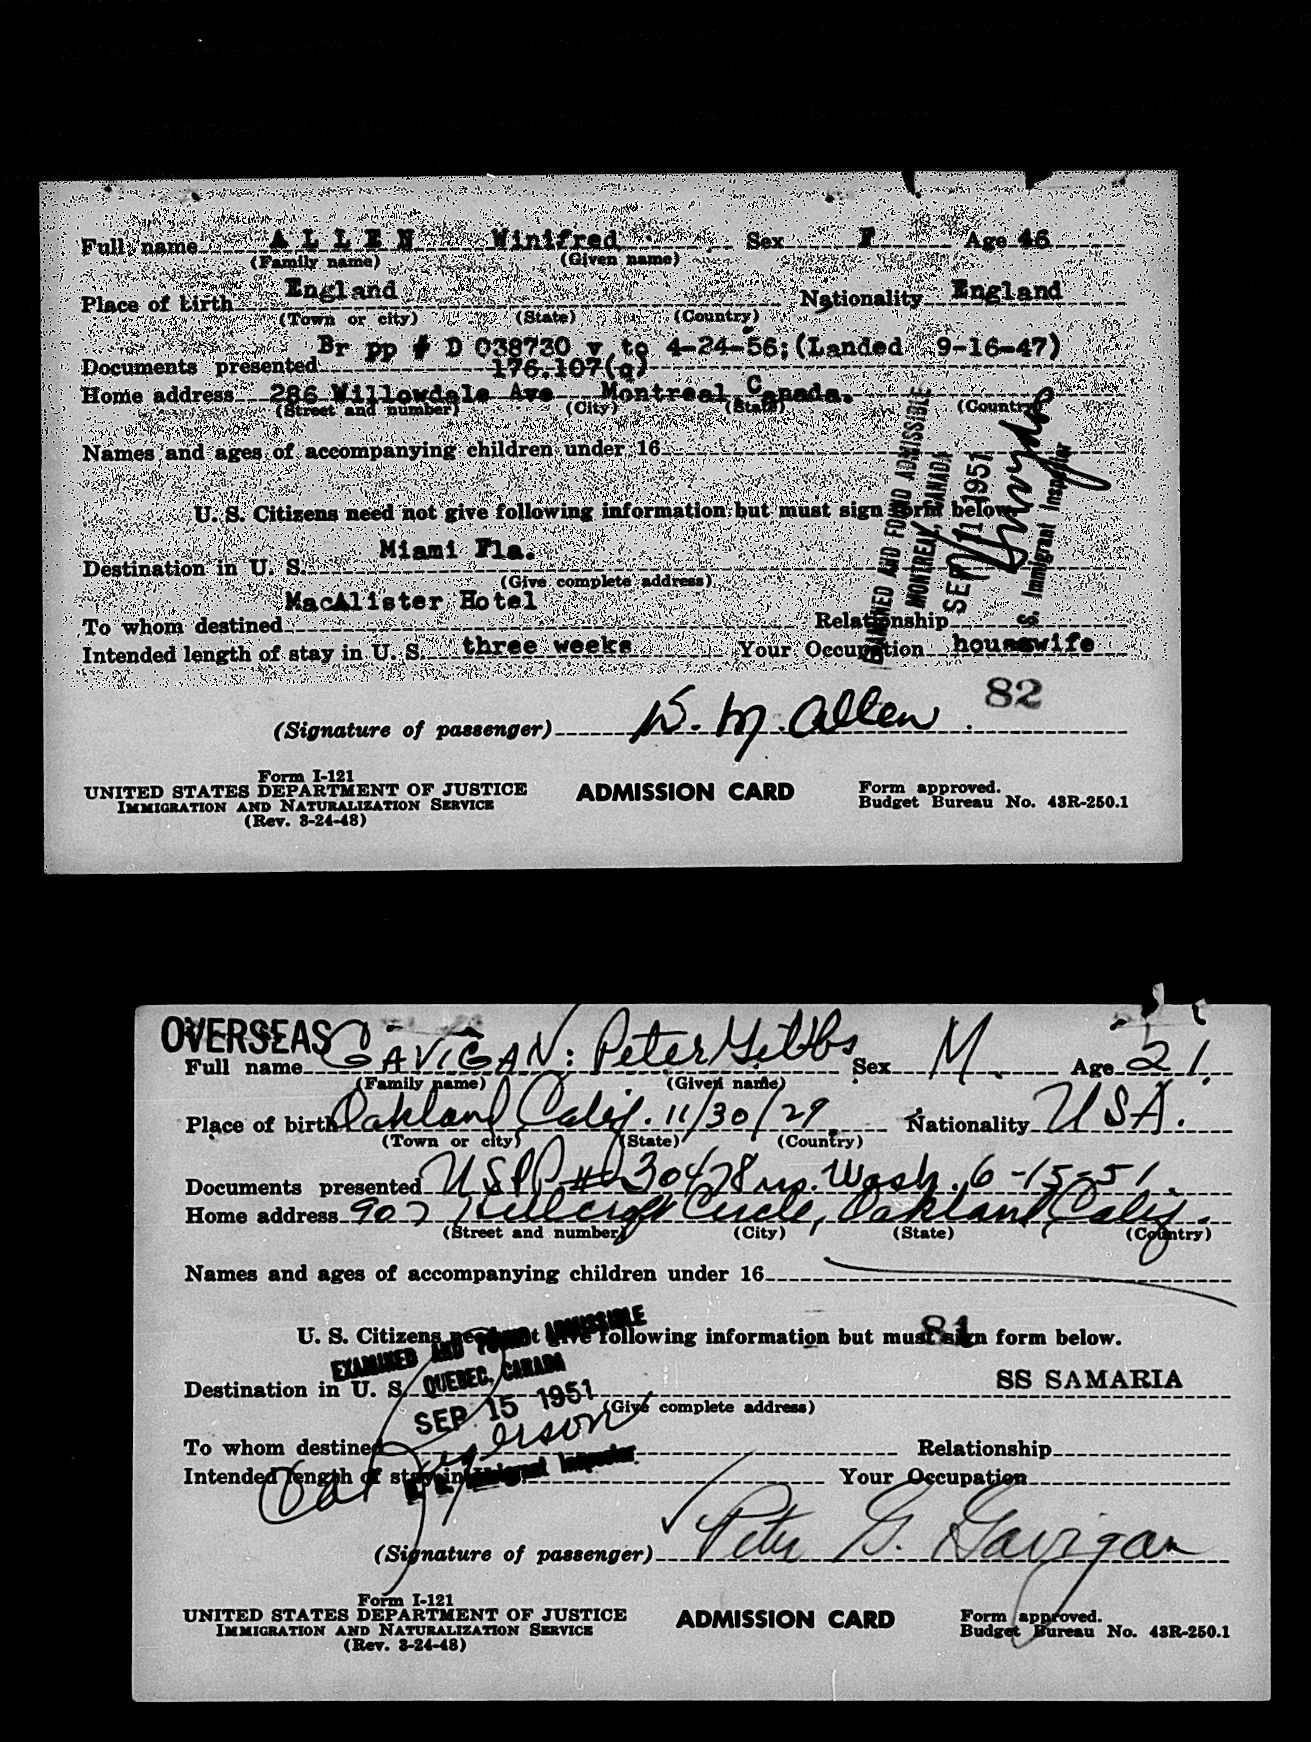 Full name ALLEN Winifred Sex F Age 46
(Family name) (Given name)
England England
Place of birth Nationality
(Town or city) (State) (Country)
Br pp # D 038730 v to 4-24-56; (Landed 9-16-47)
Documents presented 176.107(a)
Home address 286 Willowdale Ave Montreal Canada.
(Street and number) (City) (State) (Country)
Names and ages of accompanying children under 16
U. S. Citizens need not give following information but must sign form below.
Miami Fla.
Destination in U. S.
(Give complete address)
MacAlister Hotel
To whom destined Relationship
Intended length of stay in U. S. three weeks Your Occupation housewife
EXAMINED AND FOUND ADMISSIBLE
MONTREAL, CANADA
SEP 11 1951
U. S. Immigrant Inspector
82
(Signature of passenger) W. M. Allen
Form I-121
UNITED STATES DEPARTMENT OF JUSTICE ADMISSION CARD Form approved.
IMMIGRATION AND NATURALIZATION SERVICE Budget Bureau No. 43R-250.1
(Rev. 3-24-48)
OVERSEAS
Full name GAVIGAN: Peter Gibbs Sex M. Age 21.
(Family name) (Given name)
Place of birth Oakland Calif. 11/30/29 Nationality USA.
(Town or city) (State) (Country)
Documents presented USPP # 30478 iss. Wash. 6-15-51.
Home address 907 Hillcroft Circle, Oakland, Calif.
(Street and number) (City) (State) (Country)
Names and ages of accompanying children under 16
81
U. S. Citizens need not give following information but must sign form below.
EXAMINED AND FOUND ADMISSIBLE
QUEBEC, CANADA
SEP 15 1951
Destination in U. S. SS SAMARIA
(Give complete address)
To whom destined Relationship
Intended length of stay in Your Occupation
U. S. Immigrant Inspector.
(Signature of passenger) Peter G. Gavigan
Form I-121
UNITED STATES DEPARTMENT OF JUSTICE ADMISSION CARD Form approved.
IMMIGRATION AND NATURALIZATION SERVICE Budget Bureau No. 43R-250.1
(Rev. 3-24-48)